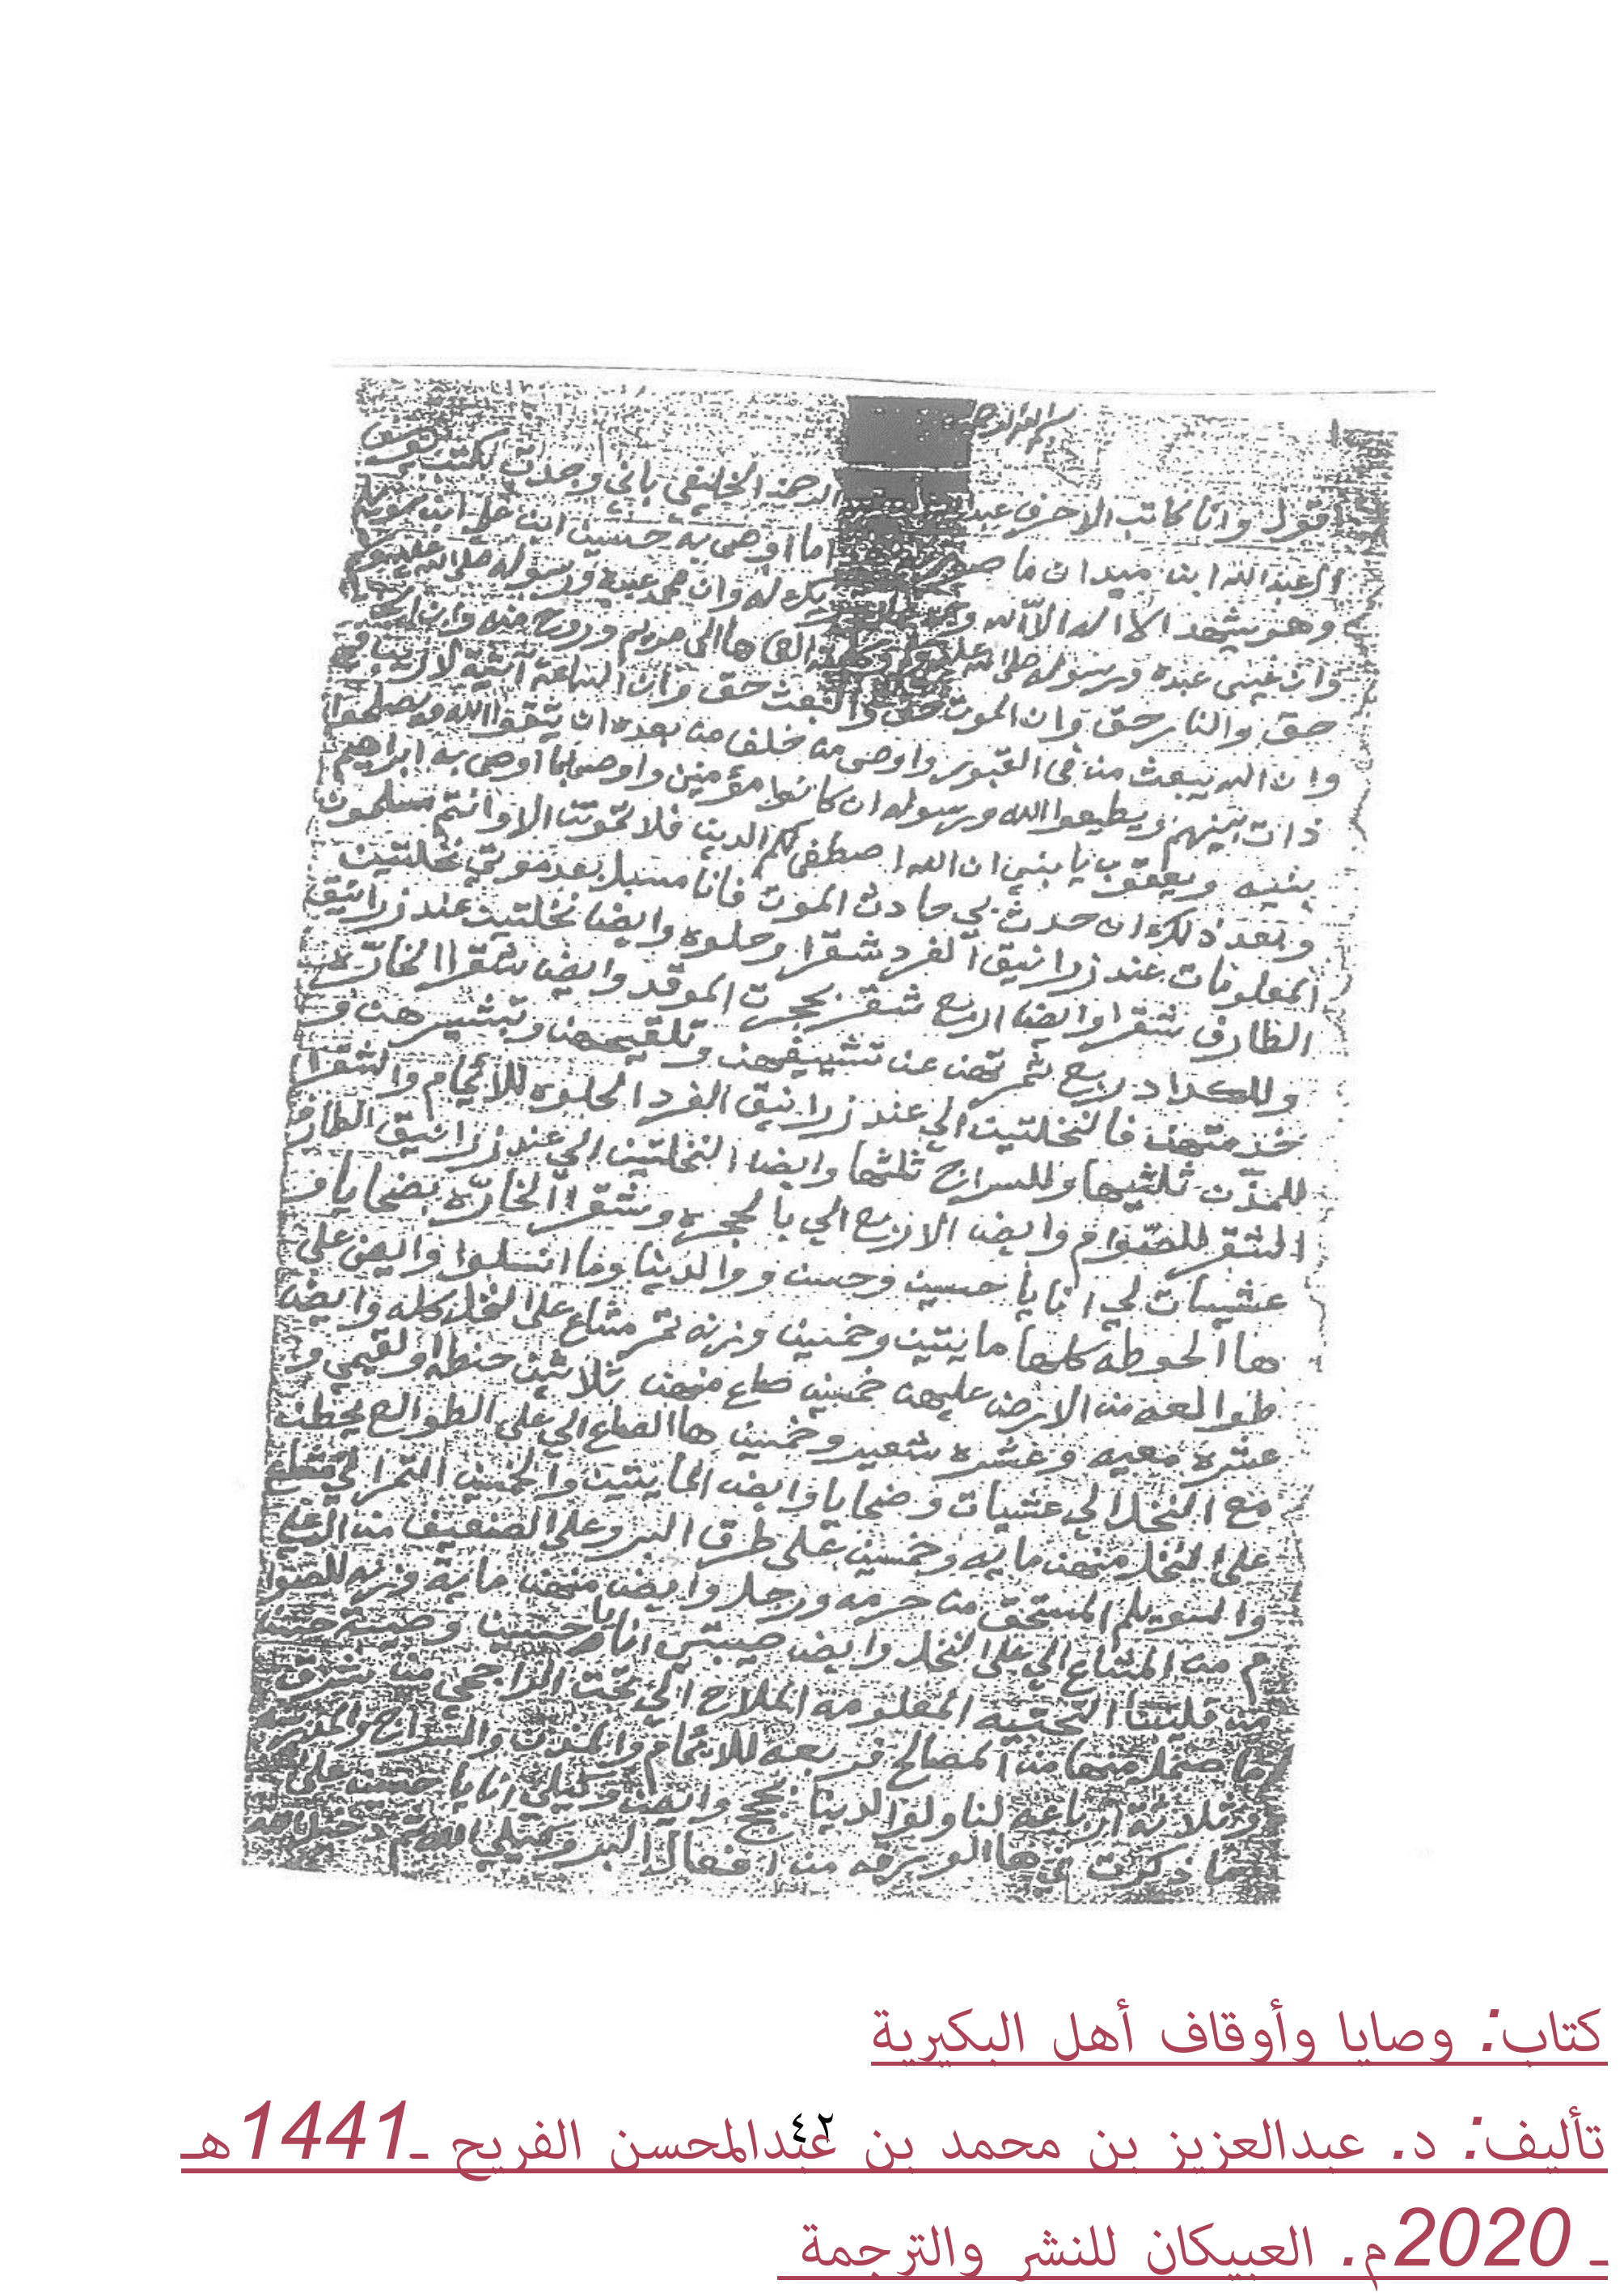 بسم الله الرحمن
اقول وانا كاتب الاحرف عبد الرحمن الخليفي باني وجدت بكتب
ال عبد الله ابن ميدان ما صورته اما اوصى به حسين ابن علي ابن
وهو يشهد الا اله الا الله شريك له وان محمد عبده ورسوله صلى الله عليه وسلم
وان عيسى عبده ورسوله صلى الله عليه وسلم وكلمته القى ها الى مريم وروح منه وان
حق والنار حق وان الموت حق والبعث حق وان الساعة آتية لا ريب فيها
وان الله يبعث من في القبور واوصى من خلف من بعده ان يتقوا الله ويصلحوا
ذات بينهم ويطيعوا الله ورسوله ان كانوا مؤمنين واوصى بما اوصى به ابراهيم
بنيه ويعقوب يا بني ان الله اصطفى لكم الدين فلا تموتن الا وانتم مسلمون
وبعد ذلك ان حدث بي حادث الموت فانا مسبل بعد موتي نخلتين
المعلومات عند زرانيق الفرد شقرا وحلوه وايضا نخلتين عند زرانيق
الطارف شقرا وايضا اربع شقر بحجرت الموقد وايضا شقرا الخارّه
وللكداد ربع ثمرتهن عن تشييفهن وتلقيحهن وتبشيرهن و
خدمتهن فالنخلتين الي عند زرانيق الفرد الحلوه للائمام والشقرا
للمذّن ثلثيها وللسراج ثلثها وايضا النخلتين الي عند زرانيق الطارف
الشقر للصّوام وايضا الاربع الي بالحجره وشقرا الخارّه بضحايا و
عشيات لي انايا حسين وحسن ووالدينا وما انسلوا وايض على
ها الحوطه كلها مايتين وخمسين وزنه تمر مشاع على النخل كله وايضا
طوالعه من الارض عليهن خمسين صاع منهن ثلاثين حنطه او لقيمي و
عشره معيه وعشره شعير وخمسين ها الصاع الي على الطوالع يحطن
مع النخل الي عشيات وضحايا وايض المايتين والخمسين التمر الي مشاع
على النخل منهن مايه وخمسين على طرق البر وعلى الضعيف من ال علي
وال سويلم المستحق من حرمه ورجل وايض منهن ماية وزنه للصوا
م من المشاع الي على النخل وايض صيبتي انايا حسين وصيبة حسن
من قليبنا التحتيه المعلومه الملاح الي تحت الراجحي من شرق
ما حصل منها من المصالح فربعه للائمام والمذن والسراج والمدرسه
وثلاثة ارباعه لنا ولوالدينا بحجج وايض وكيلي انايا حسين على
ما ذكرت في ها الورقه من افعال البر وكيلي الله ثم
كتاب: وصايا وأوقاف أهل البكيرية
تأليف: د. عبدالعزيز بن محمد بن عبدالمحسن الفريح ـ1441هـ
٤٢
ـ 2020م. العبيكان للنشر والترجمة